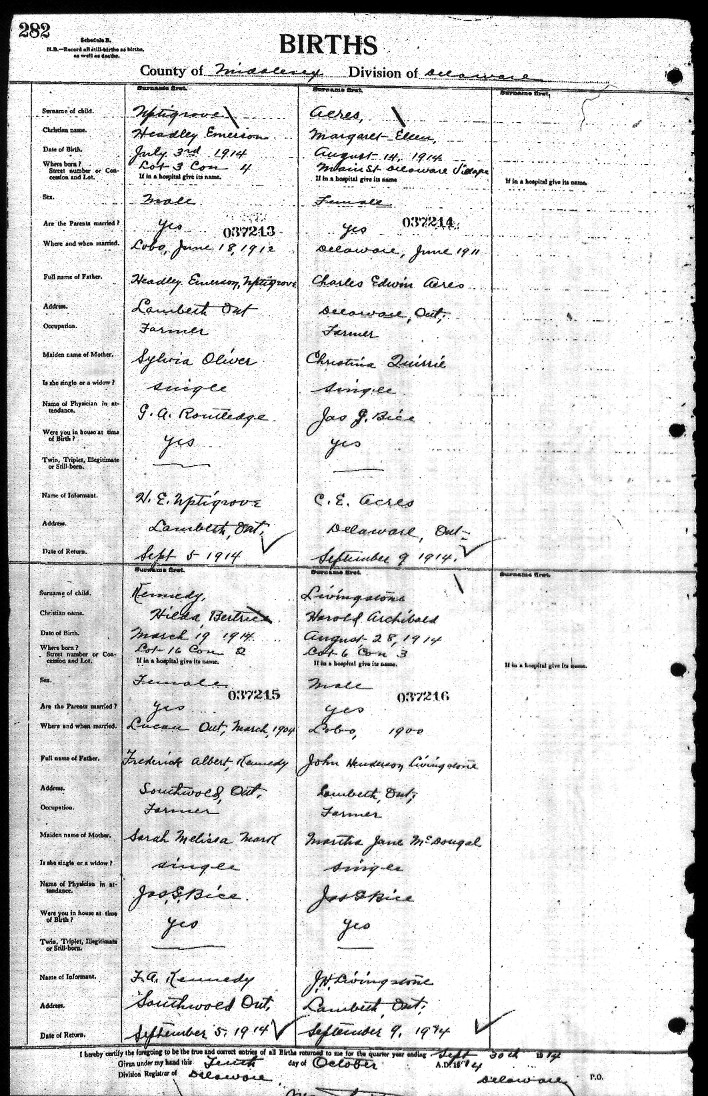 282
Schedule B.
N.B.—Record all still-births as births, as well as deaths.
BIRTHS
County of Middlesex Division of Delaware
Surname first. Surname first. Surname first.
Surname of child. Uptigrove Acres,
Christian name. Headley Emerson Margaret Ellen,
Date of Birth. July 3rd 1914 August 14, 1914
Where born? Street number or Concession and Lot. Lot 3 Con 4 Main St Delaware Village
If in a hospital give its name. If in a hospital give its name. If in a hospital give its name.
Sex. Male Female
Are the Parents married? yes 037213 yes 037214
Where and when married. Lobo, June 18, 1912 Delaware, June 1911
Full name of Father. Headley Emerson, Uptigrove Charles Edwin Acres
Address. Lambeth Ont Delaware, Ont,
Occupation. Farmer Farmer
Maiden name of Mother. Sylvia Oliver Christina Quirrie
Is she single or a widow? single single
Name of Physician in attendance. G. A. Routledge Jas G. Bice
Were you in house at time of Birth? yes yes
Twin, Triplet, Illegitimate or Still-born.
Name of Informant. H. E. Uptigrove C. E. Acres
Address. Lambeth, Ont, Delaware, Ont
Date of Return. Sept 5 1914 September 9 1914.
Surname first. Surname first. Surname first.
Surname of child. Kennedy, Livingstone
Christian name. Hilda, Bertrice Harold Archibald
Date of Birth. March 19 1914. August 28, 1914
Where born? Street number or Concession and Lot. Lot 16 Con Lot 6 Con 3
If in a hospital give its name. If in a hospital give its name. If in a hospital give its name.
Sex. Female Male
Are the Parents married? yes 037215 yes 037216
Where and when married. Lucan Ont, March, 1904 Lobo, 1900
Full name of Father. Frederick Albert, Kennedy John Henderson Livingstone
Address. Southwold, Ont, Lambeth, Ont,
Occupation. Farmer Farmer
Maiden name of Mother. Sarah Melissa Martha Jane McDougal
Is she single or a widow? single single
Name of Physician in attendance. Jas G Bice. Jas G Bice
Were you in house at time of Birth? yes yes
Twin, Triplet, Illegitimate or Still-born.
Name of Informant. F. A. Kennedy J H Livingstone
Address. Southwold Ont, Lambeth, Ont,
Date of Return. September 5, 1914 September 9, 1914
I hereby certify the foregoing to be the true and correct entries of all Births returned to me for the quarter year ending Sept 30th 1914
Given under my hand this Tenth day of October A.D. 1914
Division Registrar of Delaware Delaware P.O.